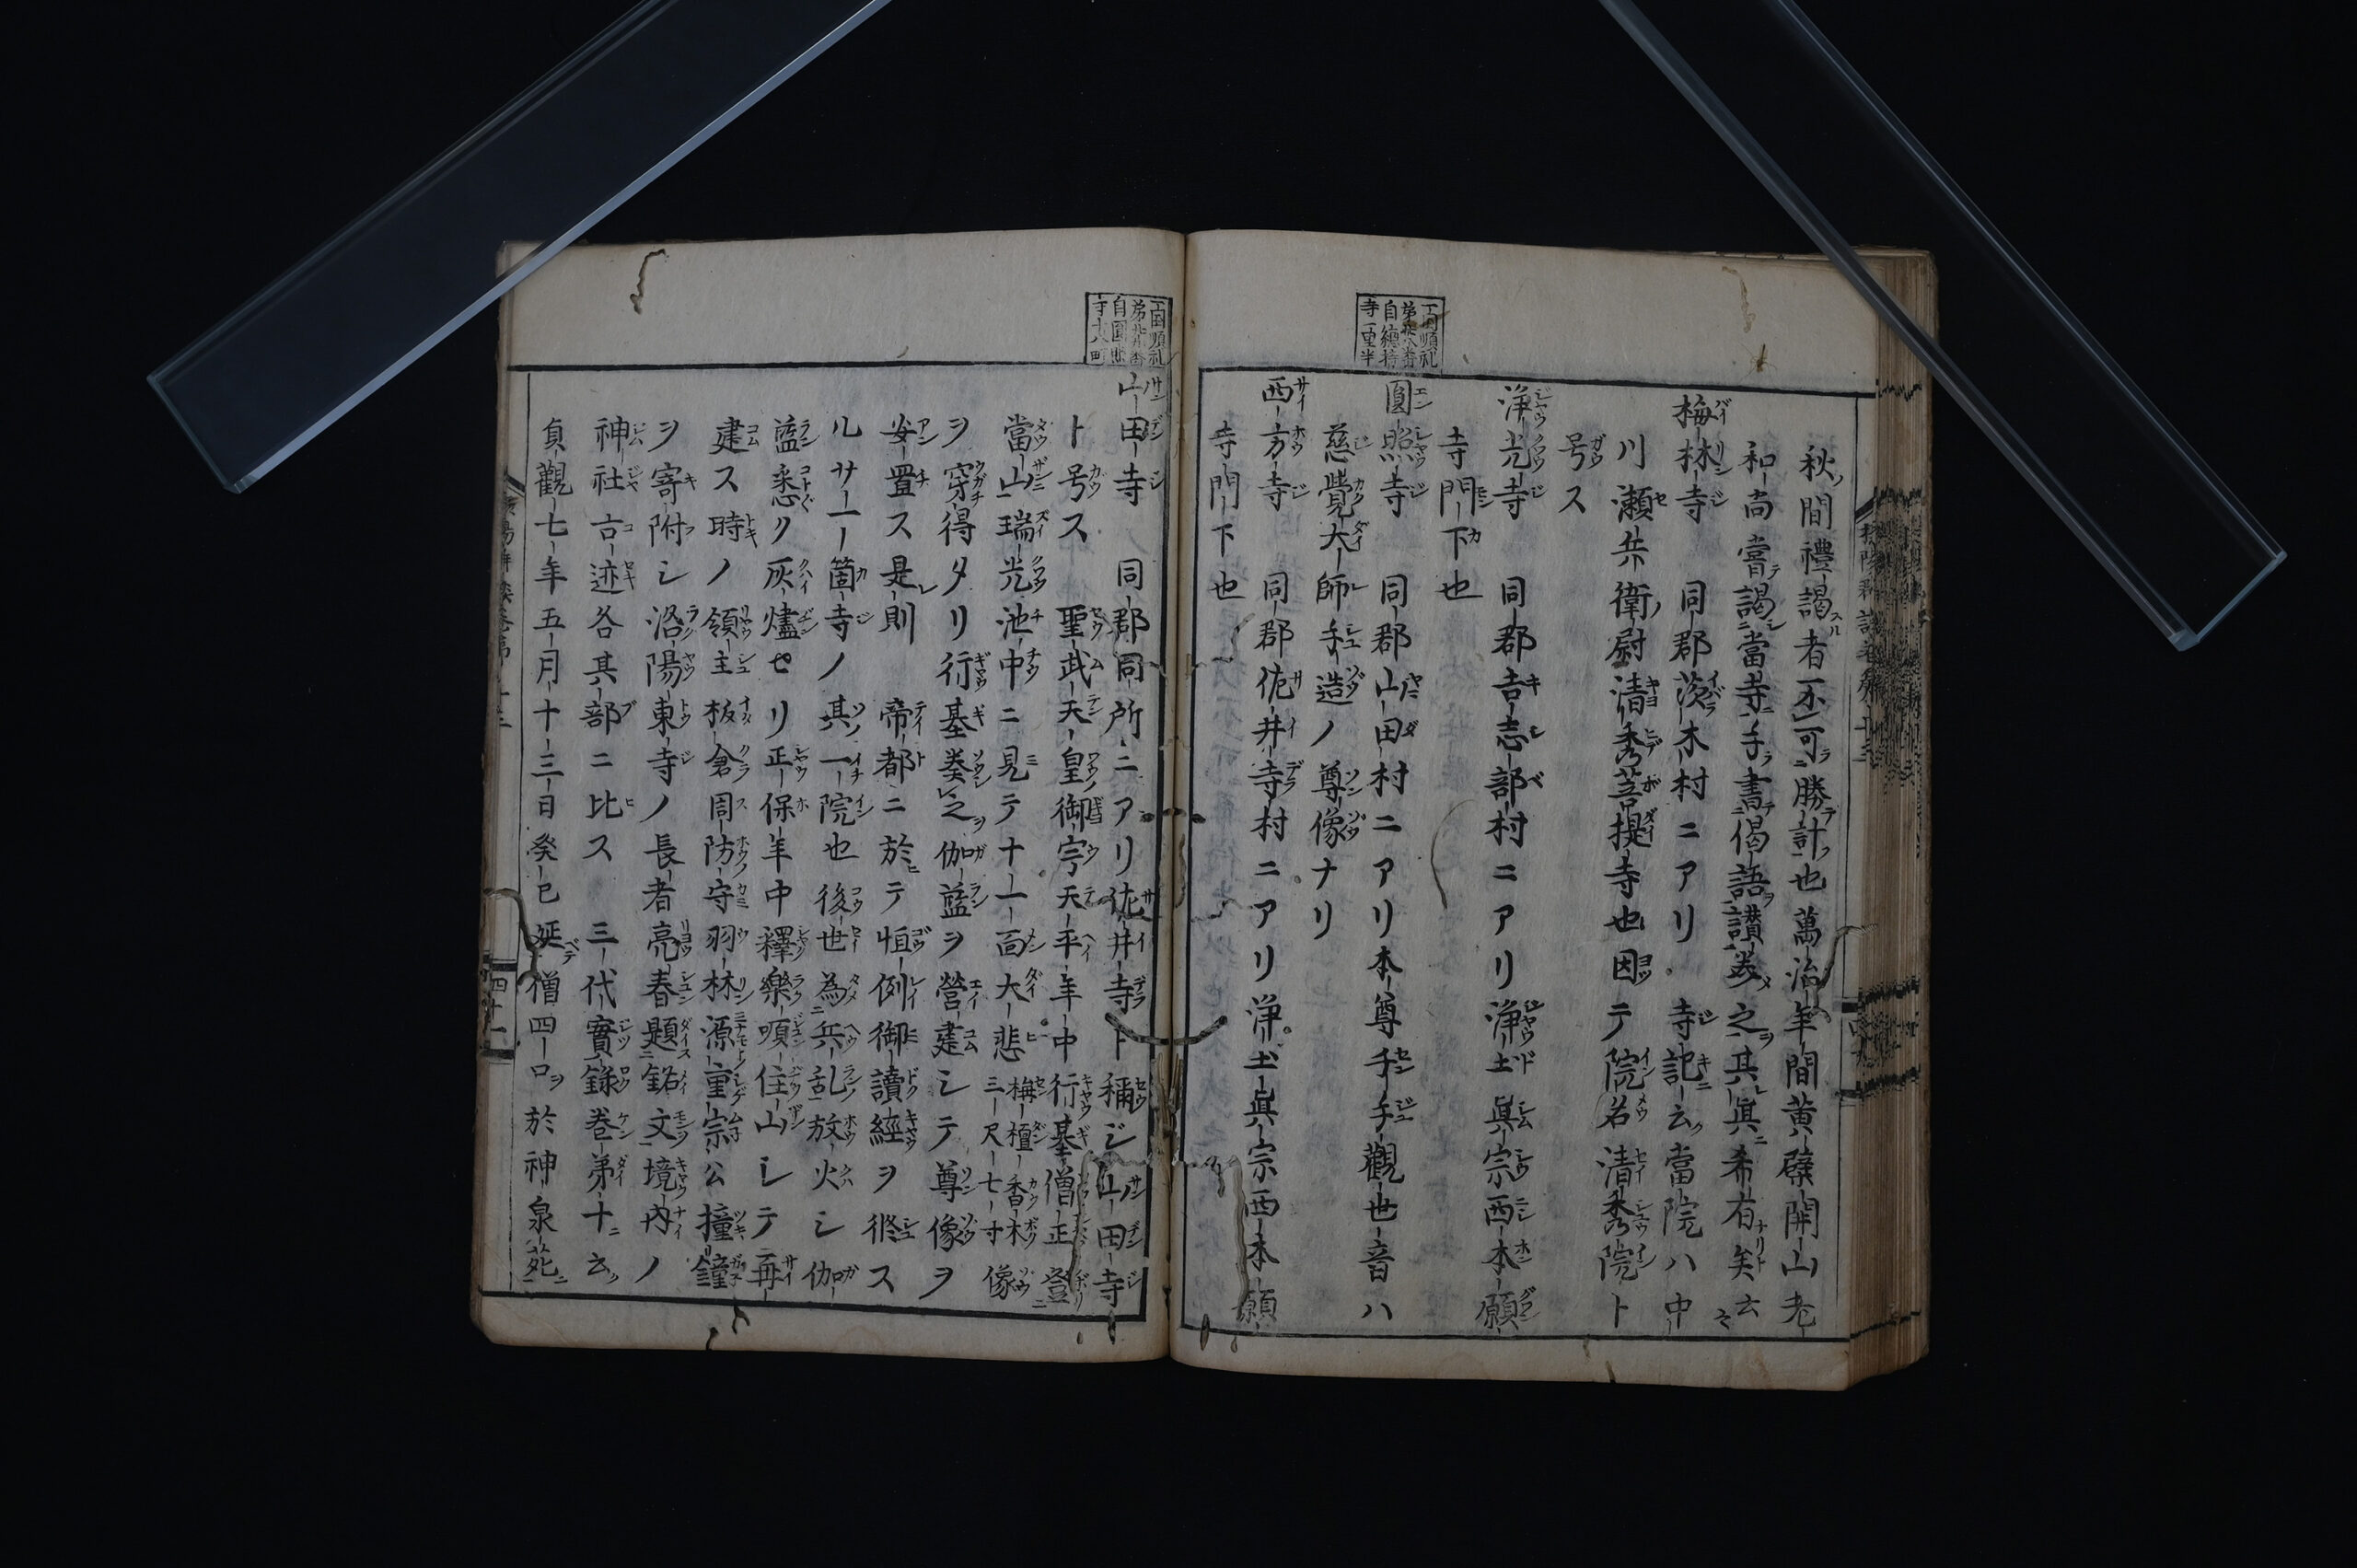 秋間禮謁者不可勝計也萬治年間黄檗開山老
和尚嘗謁當寺手書偈語讃美之其眞希有矣云云
梅林寺 同郡茨木村ニアリ 寺記云當院ハ中
川瀬兵衛尉清秀菩提寺也因テ院名清秀院ト
号ス
浄光寺 同郡吉志部村ニアリ浄土眞宗西本願
寺門下也
圓照寺 同郡山田村ニアリ本尊千手觀世音ハ
慈覺大師手造ノ尊像ナリ
西方寺 同郡佐井寺村ニアリ浄土眞宗西本願
寺門下也
自圓照
寺十八町
山田寺 同郡同所ニアリ佐井寺ト稱ジ山田寺
ト号ス 聖武天皇御宇天平年中行基僧正登
當山瑞光池中ニ見テ十一面大悲 栴檀香木 三尺七寸 像
ヲ穿得タリ行基奏之伽藍ヲ營建シテ尊像ヲ
安置ス是則 帝都ニ於テ恒例御讀經ヲ修ス
ル廿一箇寺ノ其一院也後世為兵乱放火シ伽
藍悉ク灰燼セリ正保年中釋樂順住山シテ再
建ス時ノ領主板倉周防守羽林源重宗公撞鐘
ヲ寄附シ洛陽東寺ノ長者亮春題銘文境内ノ
神社古迹各其部ニ比ス 三代實録巻第十ニ云
貞觀七年五月十三日癸巳延僧四口於神泉苑
四十一